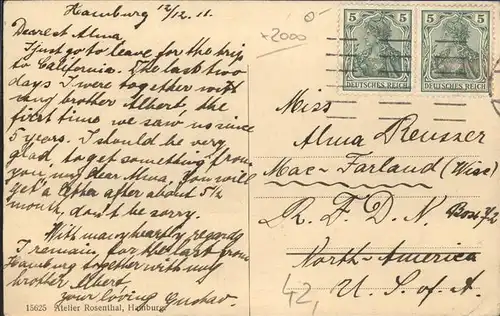 Hamburg 12/12. 11.
Dearest Alma,
I just go to leave for the trip
to California. The last two
days I were together with
and brother Albert, the
first time we saw us since
5 years. I should be very
glad, to get something from
you my dear Alma. You will
get a letter after about 5 1/2
month, don't be sorry.
With many hearty regards
I remain, for the last from
Hamburg together with my
brother Albert.
your loving Gustav.
15625 Atelier Rosenthal, Hamburg
0-
x2000
5 5
DEUTSCHES REICH
5 5
DEUTSCHES REICH
Miss
Alma Reusser
Mac-Farland (Wisc)
R. F. D. N. Box 72
North-America
U. S. of A.
42,